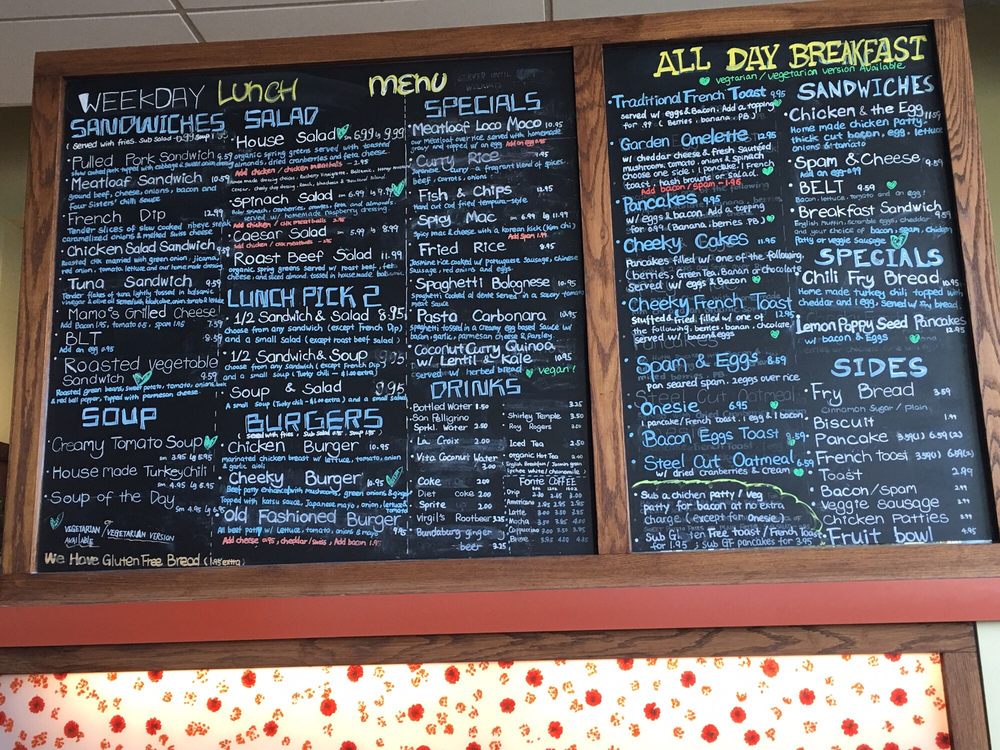 WEEKDAY LUNCH MENU
SANDWICHES
(Served with fries. Sub Salad
Pulled Pork Sandwich 9.59
Meatloaf Sandwich 10.59
Ground beef, cheese, onions, bacon and
Four Sisters' chili sauce
French Dip 12.99
Tender slices of slow cooked ribeye steak
caramelized onions & melted swiss cheese
Chicken Salad Sandwich 9.59
red onion, tomato, lettuce and our home made dressing
Tuna Sandwich 9.59
Mama's Grilled Cheese
Add Bacon 1.95, tomato 0.5, spam 1.95 7.59
BLT 8.59
Add an egg 0.95
Roasted Vegetable
Sandwich 9.59
Roasted green beans, sweet potato, tomato, onions,
red bell pepper, Topped with parmesan cheese.
SOUP
Creamy Tomato Soup
sm 3.95 lg 5.95
House made Turkey Chili
sm 4.95 lg 6.95
Soup of the Day
Sm 4.95 lg 6.95
VEGETARIAN / VEGETARIAN VERSION
AVAILABLE
We Have Gluten Free Bread (1.95 extra)
SALAD
House Salad 6.99 lg 9.99
organic spring greens served with toasted
almonds, dried cranberries and feta cheese.
Add chicken / chicken meatballs
Spinach Salad sm 6.99 lg 9.99
Baby spinach, cranberries, oranges, feta, and almonds.
served w/ homemade raspberry dressing.
Add chicken / chic meatballs
Caesar Salad sm 5.99 lg 8.99
Add chicken / chic meatballs
Roast Beef Salad 11.99
organic spring greens served w/ roast beef, feta
cheese, and sliced almond, tossed in house made balsamic
LUNCH PICK 2
1/2 Sandwich & Salad 8.95
choose from any sandwich (except French Dip)
and a small salad (except roast beef salad)
1/2 Sandwich & Soup 9.95
choose from any sandwich (except French Dip)
and a small soup (Turkey chili - $1.00 extra)
Soup & Salad 9.95
A small soup (Turkey chili - $1.00 extra) and a small salad
BURGERS
(served with fries, Sub Salad .99, Soup 1.99)
Chicken Burger 10.95
marinated chicken breast w/ lettuce, tomato, onion
& garlic aioli
Cheeky Burger 10.95
Beef patty enhanced with mushrooms, green onions & ginger
Topped with katsu sauce, Japanese mayo, onion, lettuce
tomato
Old Fashioned Burger
All beef patty w/ lettuce, tomato, onions & mayo 9.95
Add cheese 0.95, cheddar/swiss, Add bacon 1.95
SPECIALS
Meatloaf Loco Moco 10.95
our meatloaf over rice served with homemade
gravy and topped w/ an egg
Curry Rice 9.95
Japanese Curry - a fragrant blend of spices
beef, carrots, onions
Fish & Chips 12.95
Hand cut cod fried tempura-style
Spicy Mac sm 6.99 lg 11.99
Spicy mac & cheese with a korean kick (Kim chi)
Add Spam 1.95
Fried Rice 8.95
Jasmine rice cooked w/ Portuguese Sausage, Chinese
Sausage, red onions and eggs.
Spaghetti Bolognese 10.95
Spaghetti cooked al dente served in a savory tomato
meat sauce
Pasta Carbonara 10.95
spaghetti tossed in a creamy egg based sauce w/
bacon, garlic, parmesan cheese & parsley
Coconut Curry Quinoa
w/ Lentil & Kale 10.95
served w/ herbed bread vegan!
DRINKS
Bottled Water 1.50
San Pellegrino
Sprkl. Water 2.50
La Croix 2.00
Vita Coconut Water
3.00
Coke 2.00
Diet Coke 2.00
Sprite 2.00
Virgil's Rootbeer 3.25
Bundaburg ginger
beer 3.25
3.25
Shirley Temple 3.50
Roy Rogers
Iced Tea 2.50
organic Hot Tea 2.50
English Breakfast / Jasmine green
Lychee white / chamomile
FONTE COFFEE
Drip
Americano
Latte
Mocha
Cappuccino
Breve
ALL DAY BREAKFAST
vegtarian / vegetarian version Available
Traditional French Toast 9.95
served w/ eggs & Bacon. Add a topping
for .99 (Berries, banana, PB)
Garden Omelette 12.95
w/ cheddar cheese & fresh sauteed
mushrooms, tomato, onions & spinach
choose one side: 1 pancake, 1 French
toast, hash browns or Salad.
Add bacon/spam - 1.95
Pancakes 9.95
w/ eggs & bacon. Add a topping
for 0.99 (Banana, berries, PB)
Cheeky Cakes 11.95
Pancakes filled w/ one of the following
(berries, Green Tea, Banana or chocolate)
Served w/ eggs & Bacon
Cheeky French Toast
Stuffed & Fried, filled w/ one of 12.95
the following, berries, banana, chocolate
served w/ bacon & eggs
Spam & Eggs 8.59
pan seared spam, 2 eggs over rice
Onesie 6.95
1 pancake/French toast, 1 egg & 1 bacon
Bacon Eggs Toast 8.59
Steel Cut Oatmeal 6.59
w/ dried Cranberries & Cream
Sub a chicken patty / veg
patty for bacon at no extra
charge (except for Onesie)
Sub Gluten Free toast / French toast
for 1.95, Sub GF pancakes for 3.95
SANDWICHES
Chicken & the Egg 11.59
Home made chicken patty
thick cut bacon, egg, lettuce
onions & tomato
Spam & Cheese 9.59
Add an egg 0.99
BELT 9.59
Bacon, lettuce, tomato and an egg!
Breakfast Sandwich 9.59
English muffin, scramble eggs, cheddar
and your choice of bacon, spam, chicken
Patty or veggie sausage
SPECIALS
Chili Fry Bread 10.95
Home made turkey chili, topped with
cheddar and 1 egg, Served w/ fry bread
Lemon Poppy Seed Pancakes
w/ bacon & Eggs 12.95
SIDES
Fry Bread 3.59
Cinnamon Sugar / plain
Biscuit 1.99
Pancake 3.59(1) 6.59(2)
French toast 3.59(1) 6.59(2)
Toast 2.99
Bacon/spam 2.99
Veggie Sausage
Chicken Patties
Fruit bowl